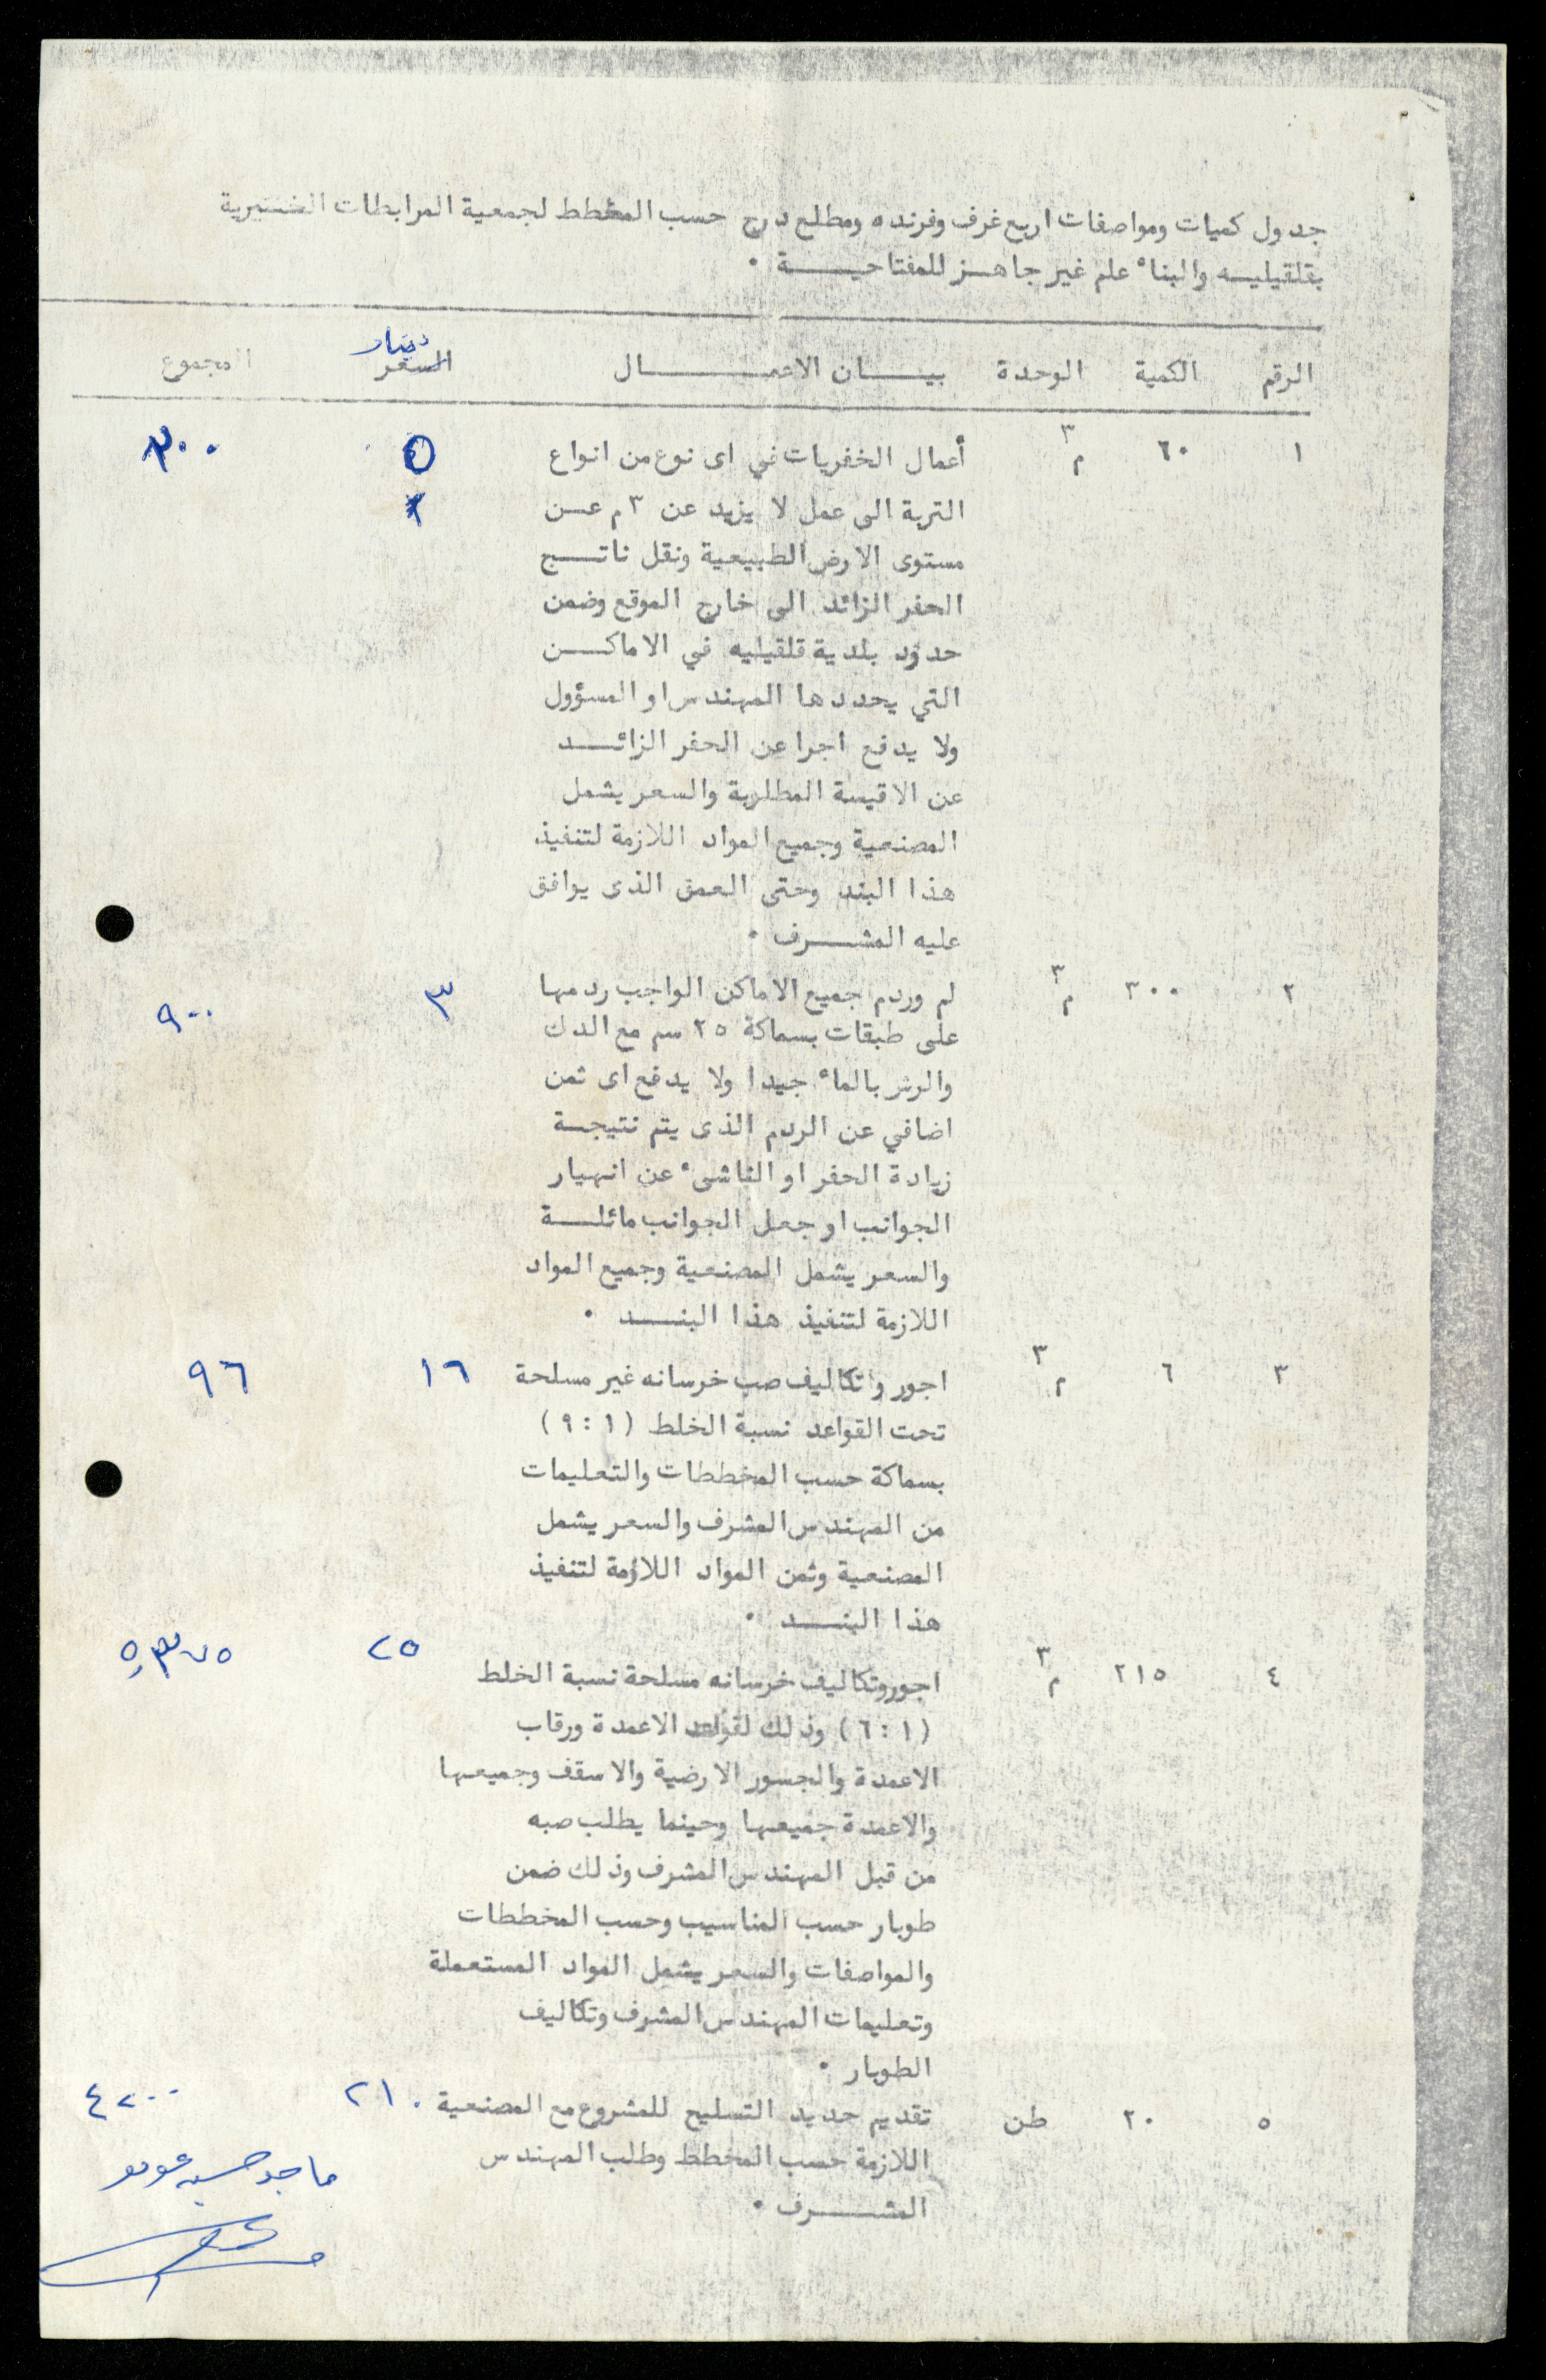 جدول كميات ومواصفات اربع غرف وفرنده ومطلع درج حسب المخطط لجمعية المرابطات الخيرية
بقلقيليـه والبناء علم غير جاهـز للمفتاحيـــة .
الرقم الكمية الوحدة بيـــان الاعمـــــال السعر دينار المجموع
١ ٦٠ م٣ أعمال الخفريات في اى نوع من انواع ٥ ٣٠٠
التربة الى عمل لا يزيد عن ٣ م عـن
مستوى الارض الطبيعية ونقل ناتـــج
الحفر الزائد الى خارج الموقع وضمن
حدود بلدية قلقيليه في الاماكـــن
التي يحددها المهندس او المسؤول
ولا يدفع اجرا عن الحفر الزائـــد
عن الاقيسة المطلوبة والسعر يشمل
المصنعية وجميع المواد اللازمة لتنفيذ
هذا البند وحتى العمق الذى يوافق
عليه المشـــرف .
٢ ٣٠٠ م٣ لم وردم جميع الاماكن الواجب ردمها ٣ ٩٠٠
على طبقات بسماكة ٢٥ سم مع الدك
والرش بالماء جيدا ولا يدفع اى ثمن
اضافي عن الردم الذى يتم نتيجـة
زيادة الحفر او الناشىء عن انهيار
الجوانب او جعل الجوانب مائلـــة
والسعر يشمل المصنعية وجميع المواد
اللازمة لتنفيذ هذا البنـــد .
٣ ٦ م٣ اجور وتكاليف صب خرسانه غير مسلحة ١٦ ٩٦
تحت القواعد نسبة الخلط (٩:١)
بسماكة حسب المخططات والتعليمات
من المهندس المشرف والسعر يشمل
المصنعية وثمن المواد اللازمة لتنفيذ
هذا البنـــد .
٤ ٢١٥ م٣ اجور وتكاليف خرسانه مسلحة نسبة الخلط ٢٥ ٥,٣٧٥
(٦:١) وذلك لقواعد الاعمدة ورقاب
الاعمدة والجسور الارضية والاسقف وجميعها
والاعمدة جميعها وحينما يطلب صبه
من قبل المهندس المشرف وذلك ضمن
طوبار حسب المناسيب وحسب المخططات
والمواصفات والسعر يشمل المواد المستعملة
وتعليمات المهندس المشرف وتكاليف
الطوبار .
٥ ٢٠ طن تقديم حديد التسليح للمشروع مع المصنعية ٢١٠ ٤٢٠٠
اللازمة حسب المخطط وطلب المهندس
المشـــرف .
ماجد حسين